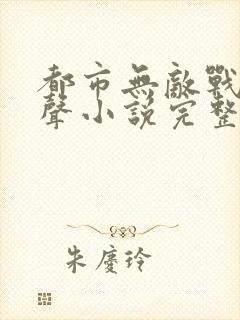 都市無敵戰
聲小說完整
朱慶玲